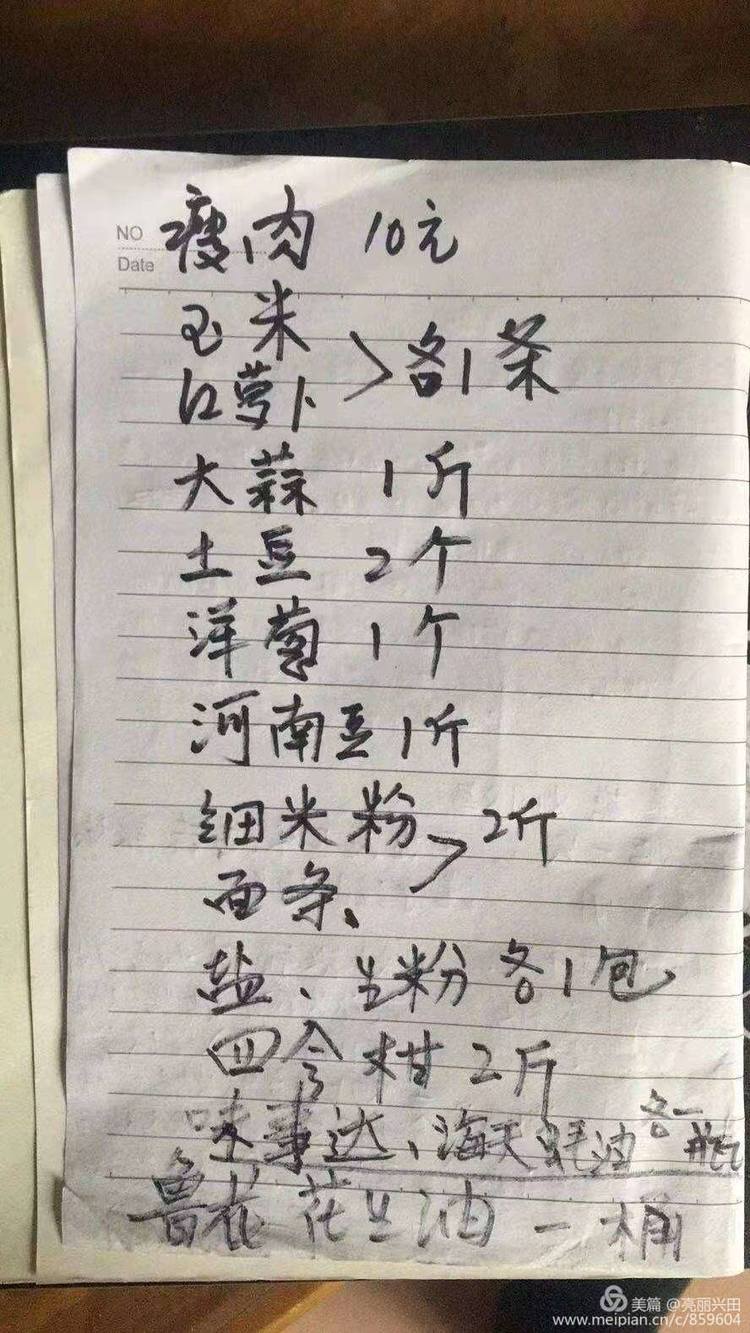 NO
Date
瘦肉 10元
玉米
红萝卜 > 各1条
大蒜 1斤
土豆 2个
洋葱 1个
河南豆1斤
细米粉
面条、 > 2斤
盐、生粉 各1包
四会柑 2斤
味事达、海天蚝油 各一瓶
鲁花花生油 一桶
美篇 @亮丽兴田
www.meipian.cn/c/859604